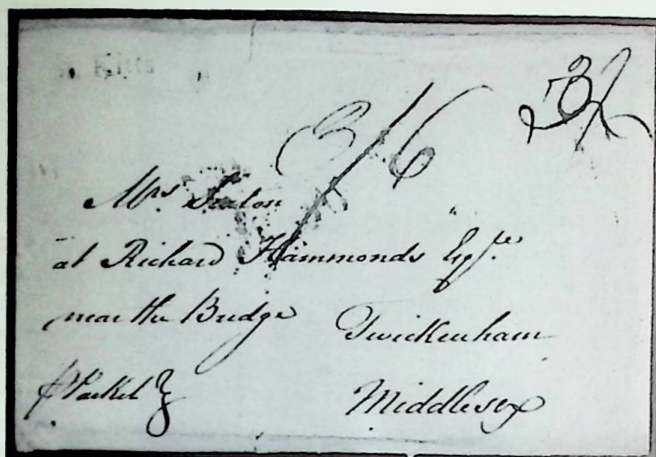 Kitts
3/6
Mrs Seaton
at Richard Hammonds Esqr.
near the Bridge Twickenham
p Packet Middlesex